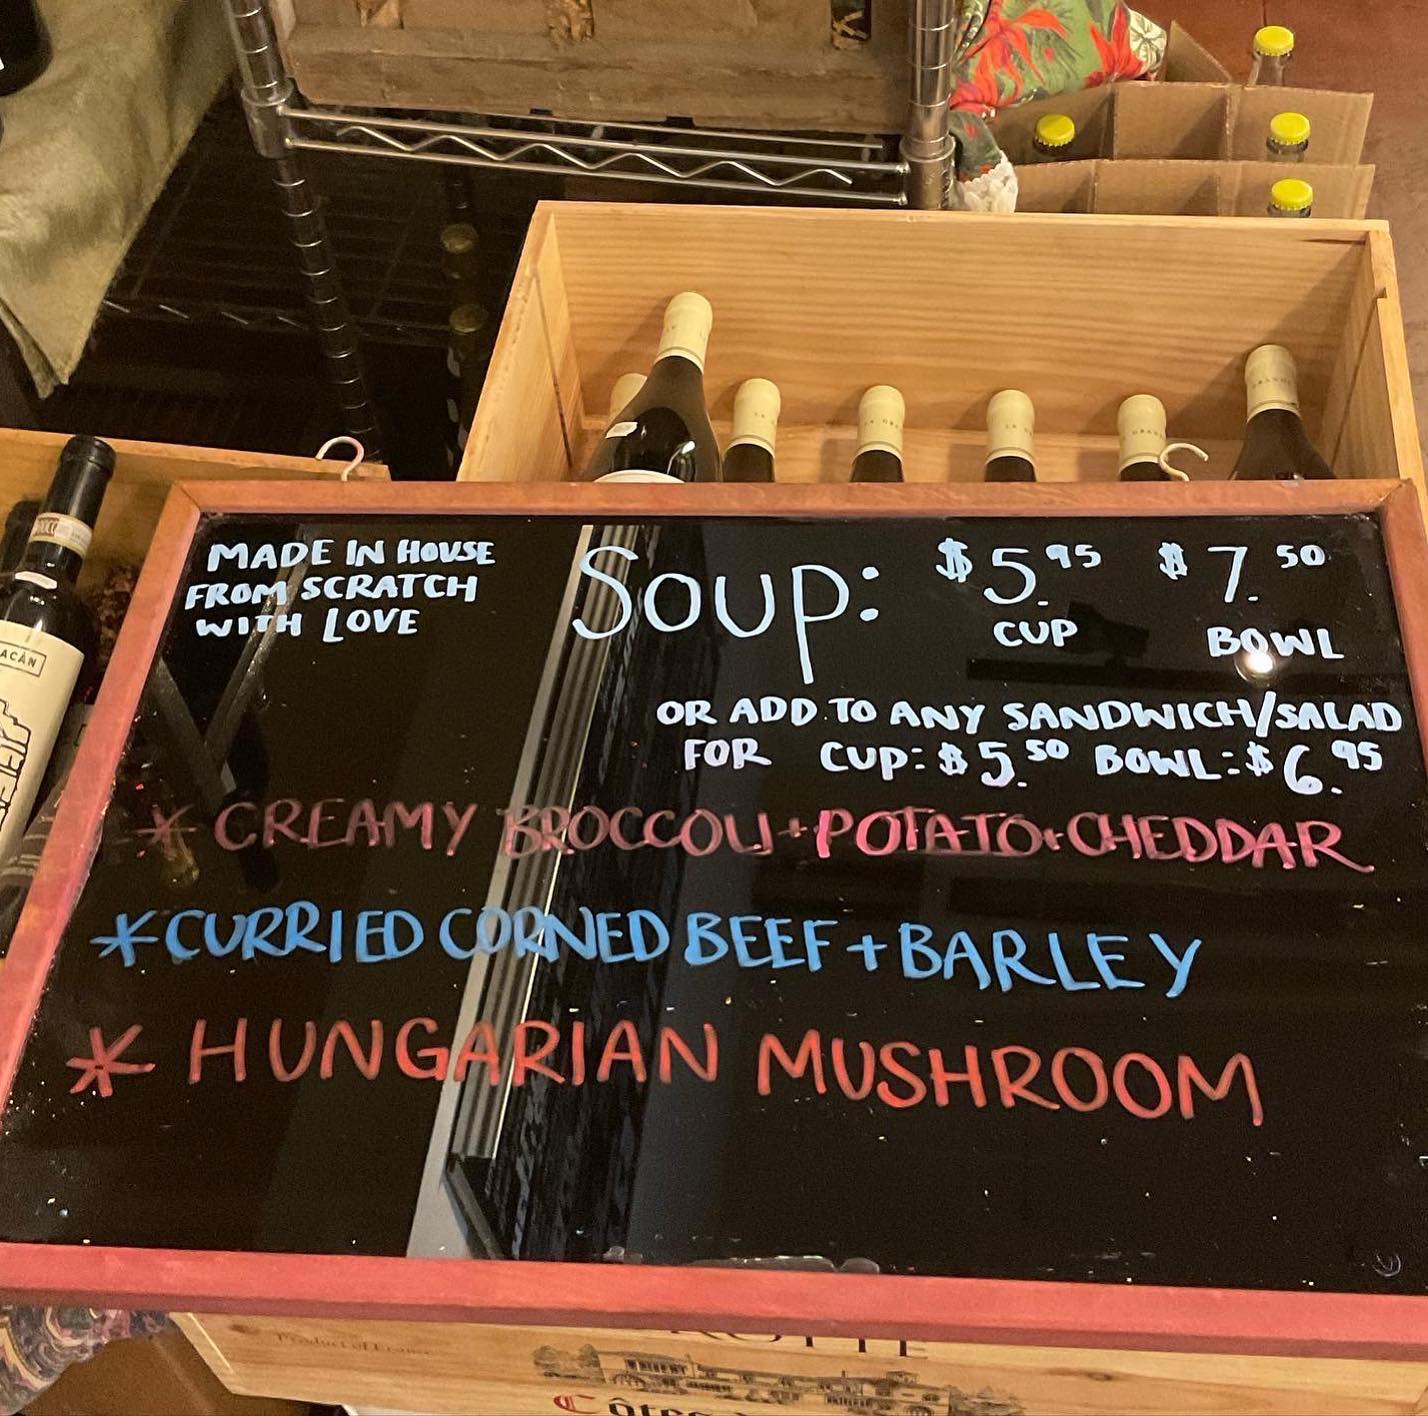 MADE IN HOUSE
FROM SCRATCH
WITH LOVE
SOUP:
$5.95 $7.50
CUP BOWL
OR ADD TO ANY SANDWICH/SALAD
FOR CUP: $5.50 BOWL: $6.95
* CREAMY BROCCOLI + POTATO + CHEDDAR
* CURRIED CORNED BEEF + BARLEY
* HUNGARIAN MUSHROOM
ACÁN
Product of France
Côtes